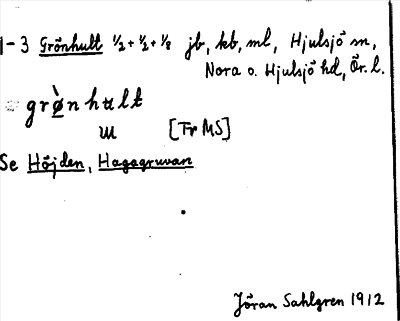 1-3 Grönhult 1/2 + 1/2 + 1/8 jb, kb, ml, Hjulsjö sn,
Nora o. Hjulsjö hd, Ör. l.
grø̀nhult
[Fr MS]
Se Höjden, Hagagruvan
Jöran Sahlgren 1912